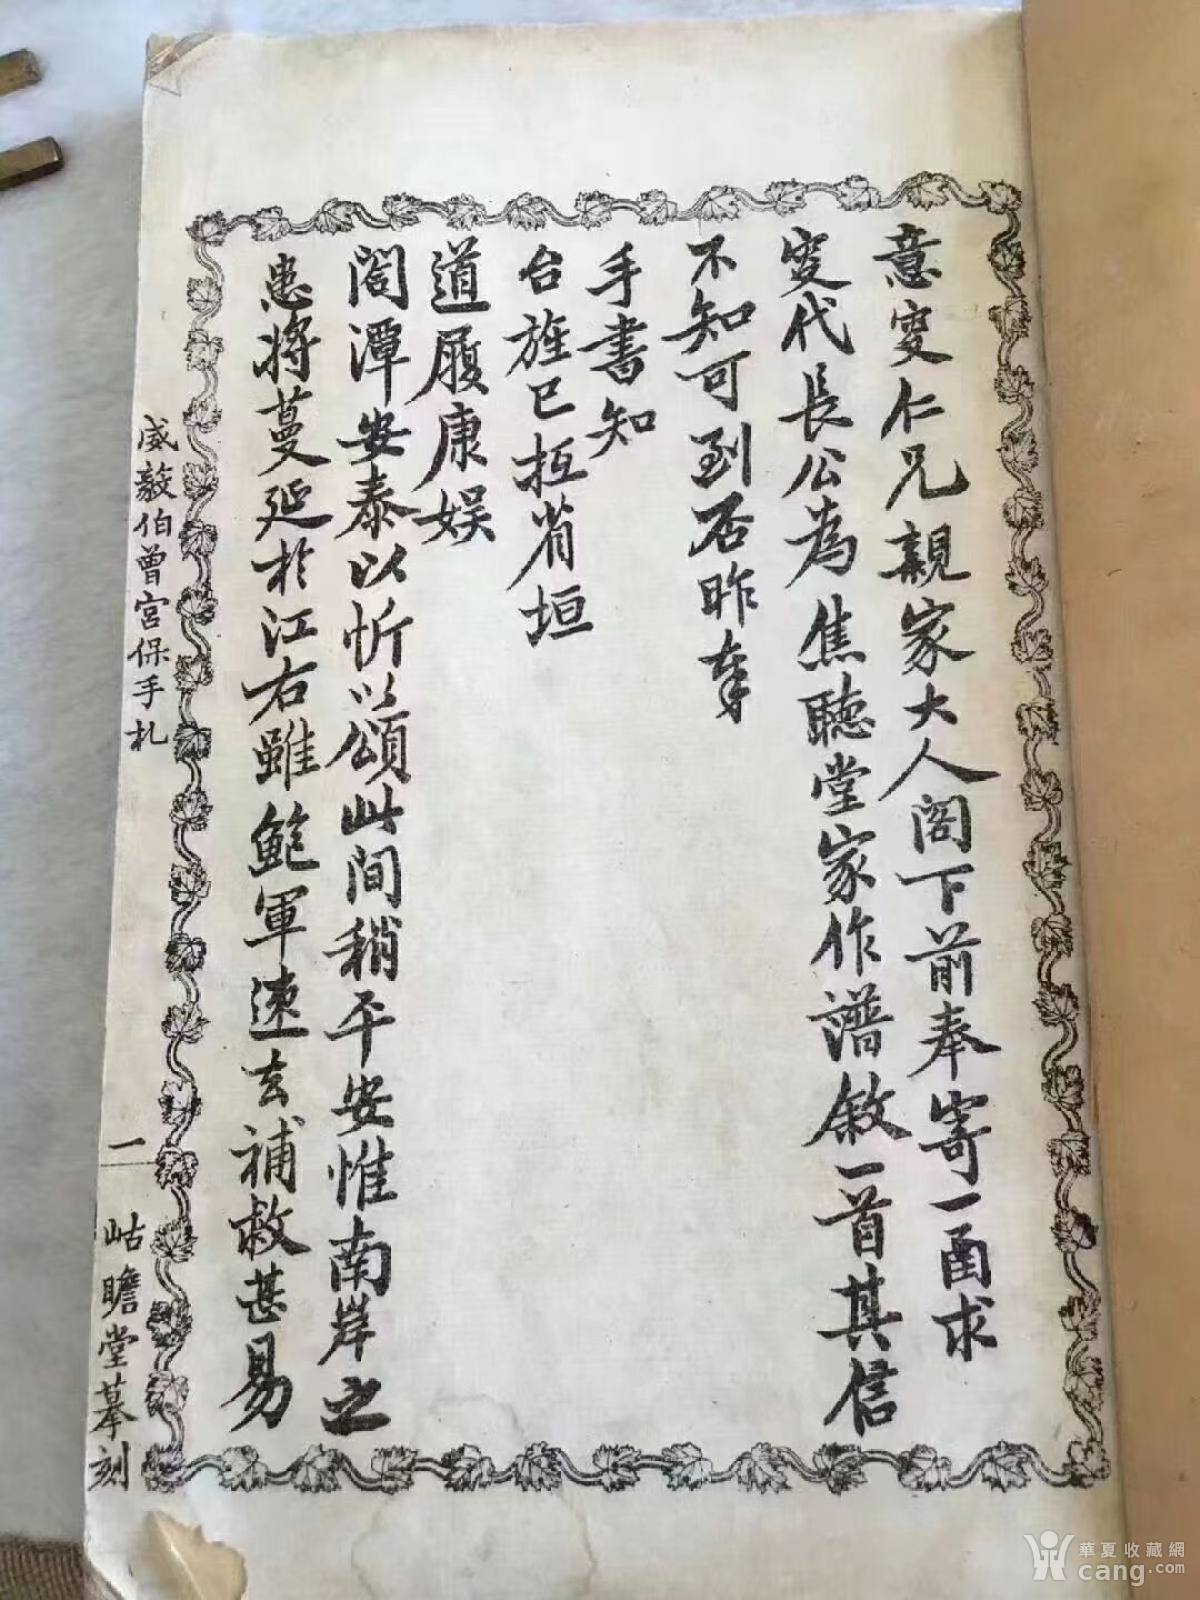 意叟仁兄親家大人閣下前奉寄一函求
叟代長公為焦聽堂家作譜敘一首其信
不知可到否昨奉
手書知
台旌已抵省垣
道履康娛
閤潭安泰以忻以頌此間稍平安惟南岸之
患將蔓延於江右雖鮑軍速去補救甚易
威毅伯曾宮保手札
一
岵瞻堂摹刻
華夏收藏網
cang.com